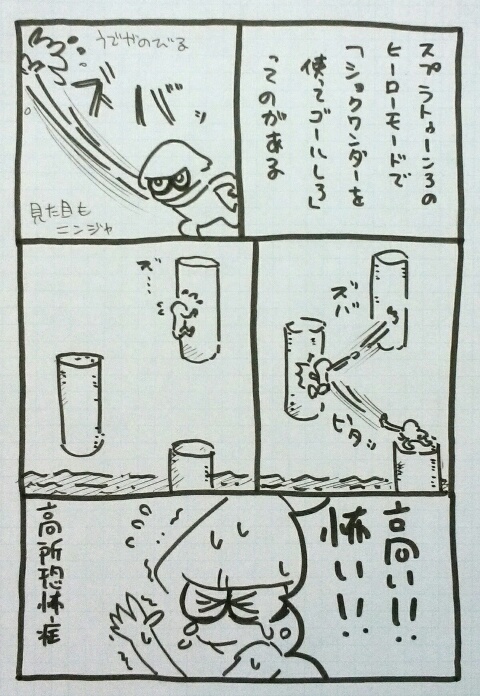 スプラトゥーン3の
ヒーローモードで
「ショクワンダーを
使ってゴールしろ」
ってのがある
うでがのびる
ズバッ
見た目も
ニンジャ
ズバ
ピタッ
ズ…
高い!!
怖い!!
高所恐怖症